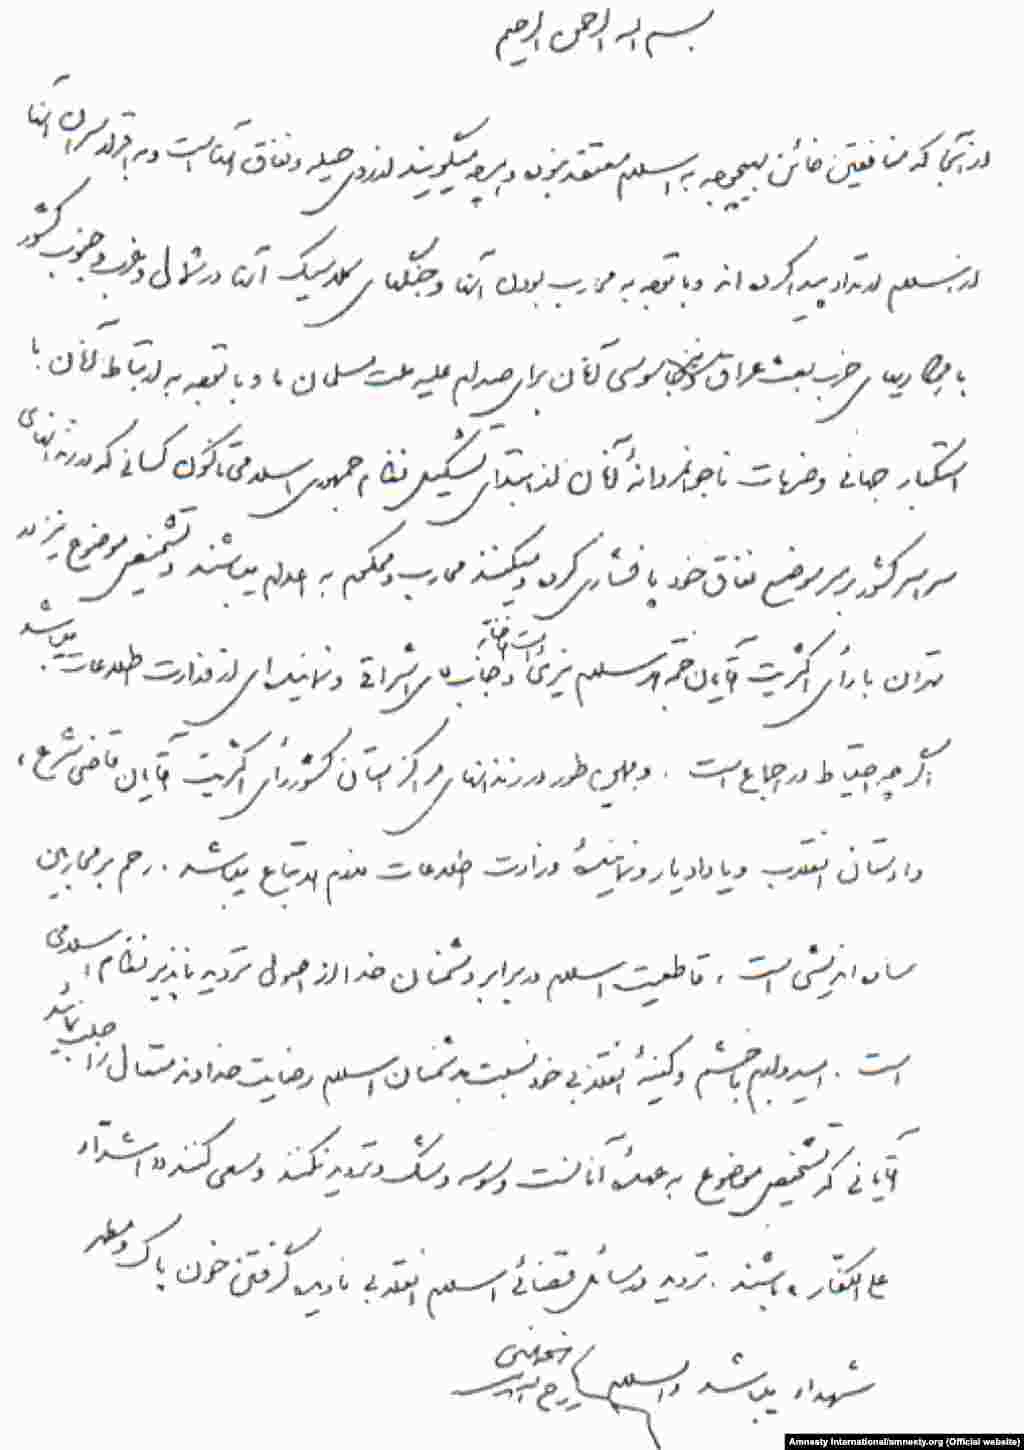 بسم الله الرحمن الرحیم
از آنجا که منافقین خائن بهیچوجه به اسلام معتقد نبوده و هر چه میگویند از روی حیله و نفاق آنهاست و به اقرار سران آنها
از اسلام ارتداد پیدا کرده‌اند و با توجه به محارب بودن آنها و جنگهای کلاسیک آنها در شمال و غرب و جنوب کشور
با همکاریهای حزب بعث عراق و نیز جاسوسی آنان برای صدام علیه ملت مسلمان ما و با توجه به ارتباط آنان با
استکبار جهانی و ضربات ناجوانمردانهٔ آنان از ابتدای تشکیل نظام جمهوری اسلامی تاکنون کسانی که در زندانهای
سراسر کشور بر سر موضع نفاق خود پافشاری کرده و میکنند محارب و محکوم به اعدام میباشند و تشخیص موضوع نیز در
تهران با رأی اکثریت آقایان حجةالاسلام نیری دامت افاضاته و جناب آقای اشراقی و نماینده‌ای از وزارت اطلاعات میباشد
اگر چه احتیاط در اجماع است . و همین طور در زندانهای مراکز استان کشور رأی اکثریت آقایان قاضی شرع ،
دادستان انقلاب و یا دادیار و نمایندهٔ وزارت اطلاعات لازم الاتباع میباشد . رحم بر محاربین
ساده اندیشی است ، قاطعیت اسلام در برابر دشمنان خدا از اصول تردید ناپذیر نظام اسلامی
است . امیدوارم با خشم و کینهٔ انقلابی خود نسبت بدشمنان اسلام رضایت خداوند متعال را جلب نمائید
آقایانی که تشخیص موضوع به عهدهٔ آنانست وسوسه و شک و تردید نکنند و سعی کنند «اشداء
علی الکفار» باشند . تردید در مسائل قضائی اسلام انقلابی نادیده گرفتن خون پاک و مطهر
شهداء میباشد والسلام
روح الله الموسوی الخمینی
Amnesty International/amnesty.org (Official website)